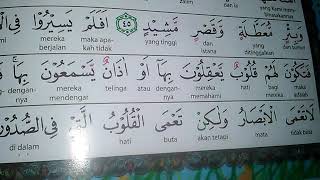 وَبِئْرٍ مُّعَطَّلَةٍ وَّقَصْرٍ مَّشِيْدٍ ﴿٤٥﴾ اَفَلَمْ يَسِيْرُوْا فِى
yang ditinggalkan dan istana yang tinggi maka apakah tidak mereka berjalan
فَتَكُوْنَ لَهُمْ قُلُوْبٌ يَّعْقِلُوْنَ بِهَآ اَوْ اٰذَانٌ يَّسْمَعُوْنَ بِهَاۚ
bagi mereka hati mereka memahami dengannya atau telinga mereka mendengar dengannya
لَا تَعْمَى الْاَبْصَارُ وَلٰكِنْ تَعْمَى الْقُلُوْبُ الَّتِيْ فِى الصُّدُوْرِ
mata akan tetapi buta hati di dalam